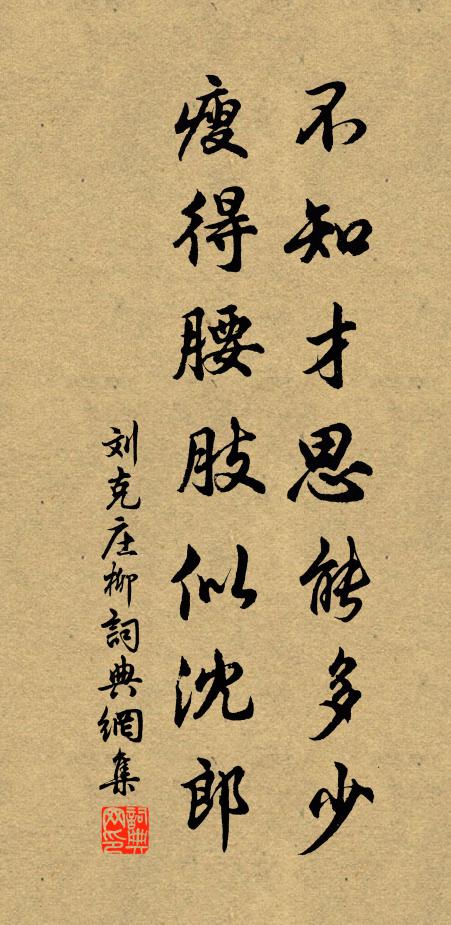 不知才思能多少
瘦得腰肢似沈郎
刘克庄柳詞典網集
詞典网印